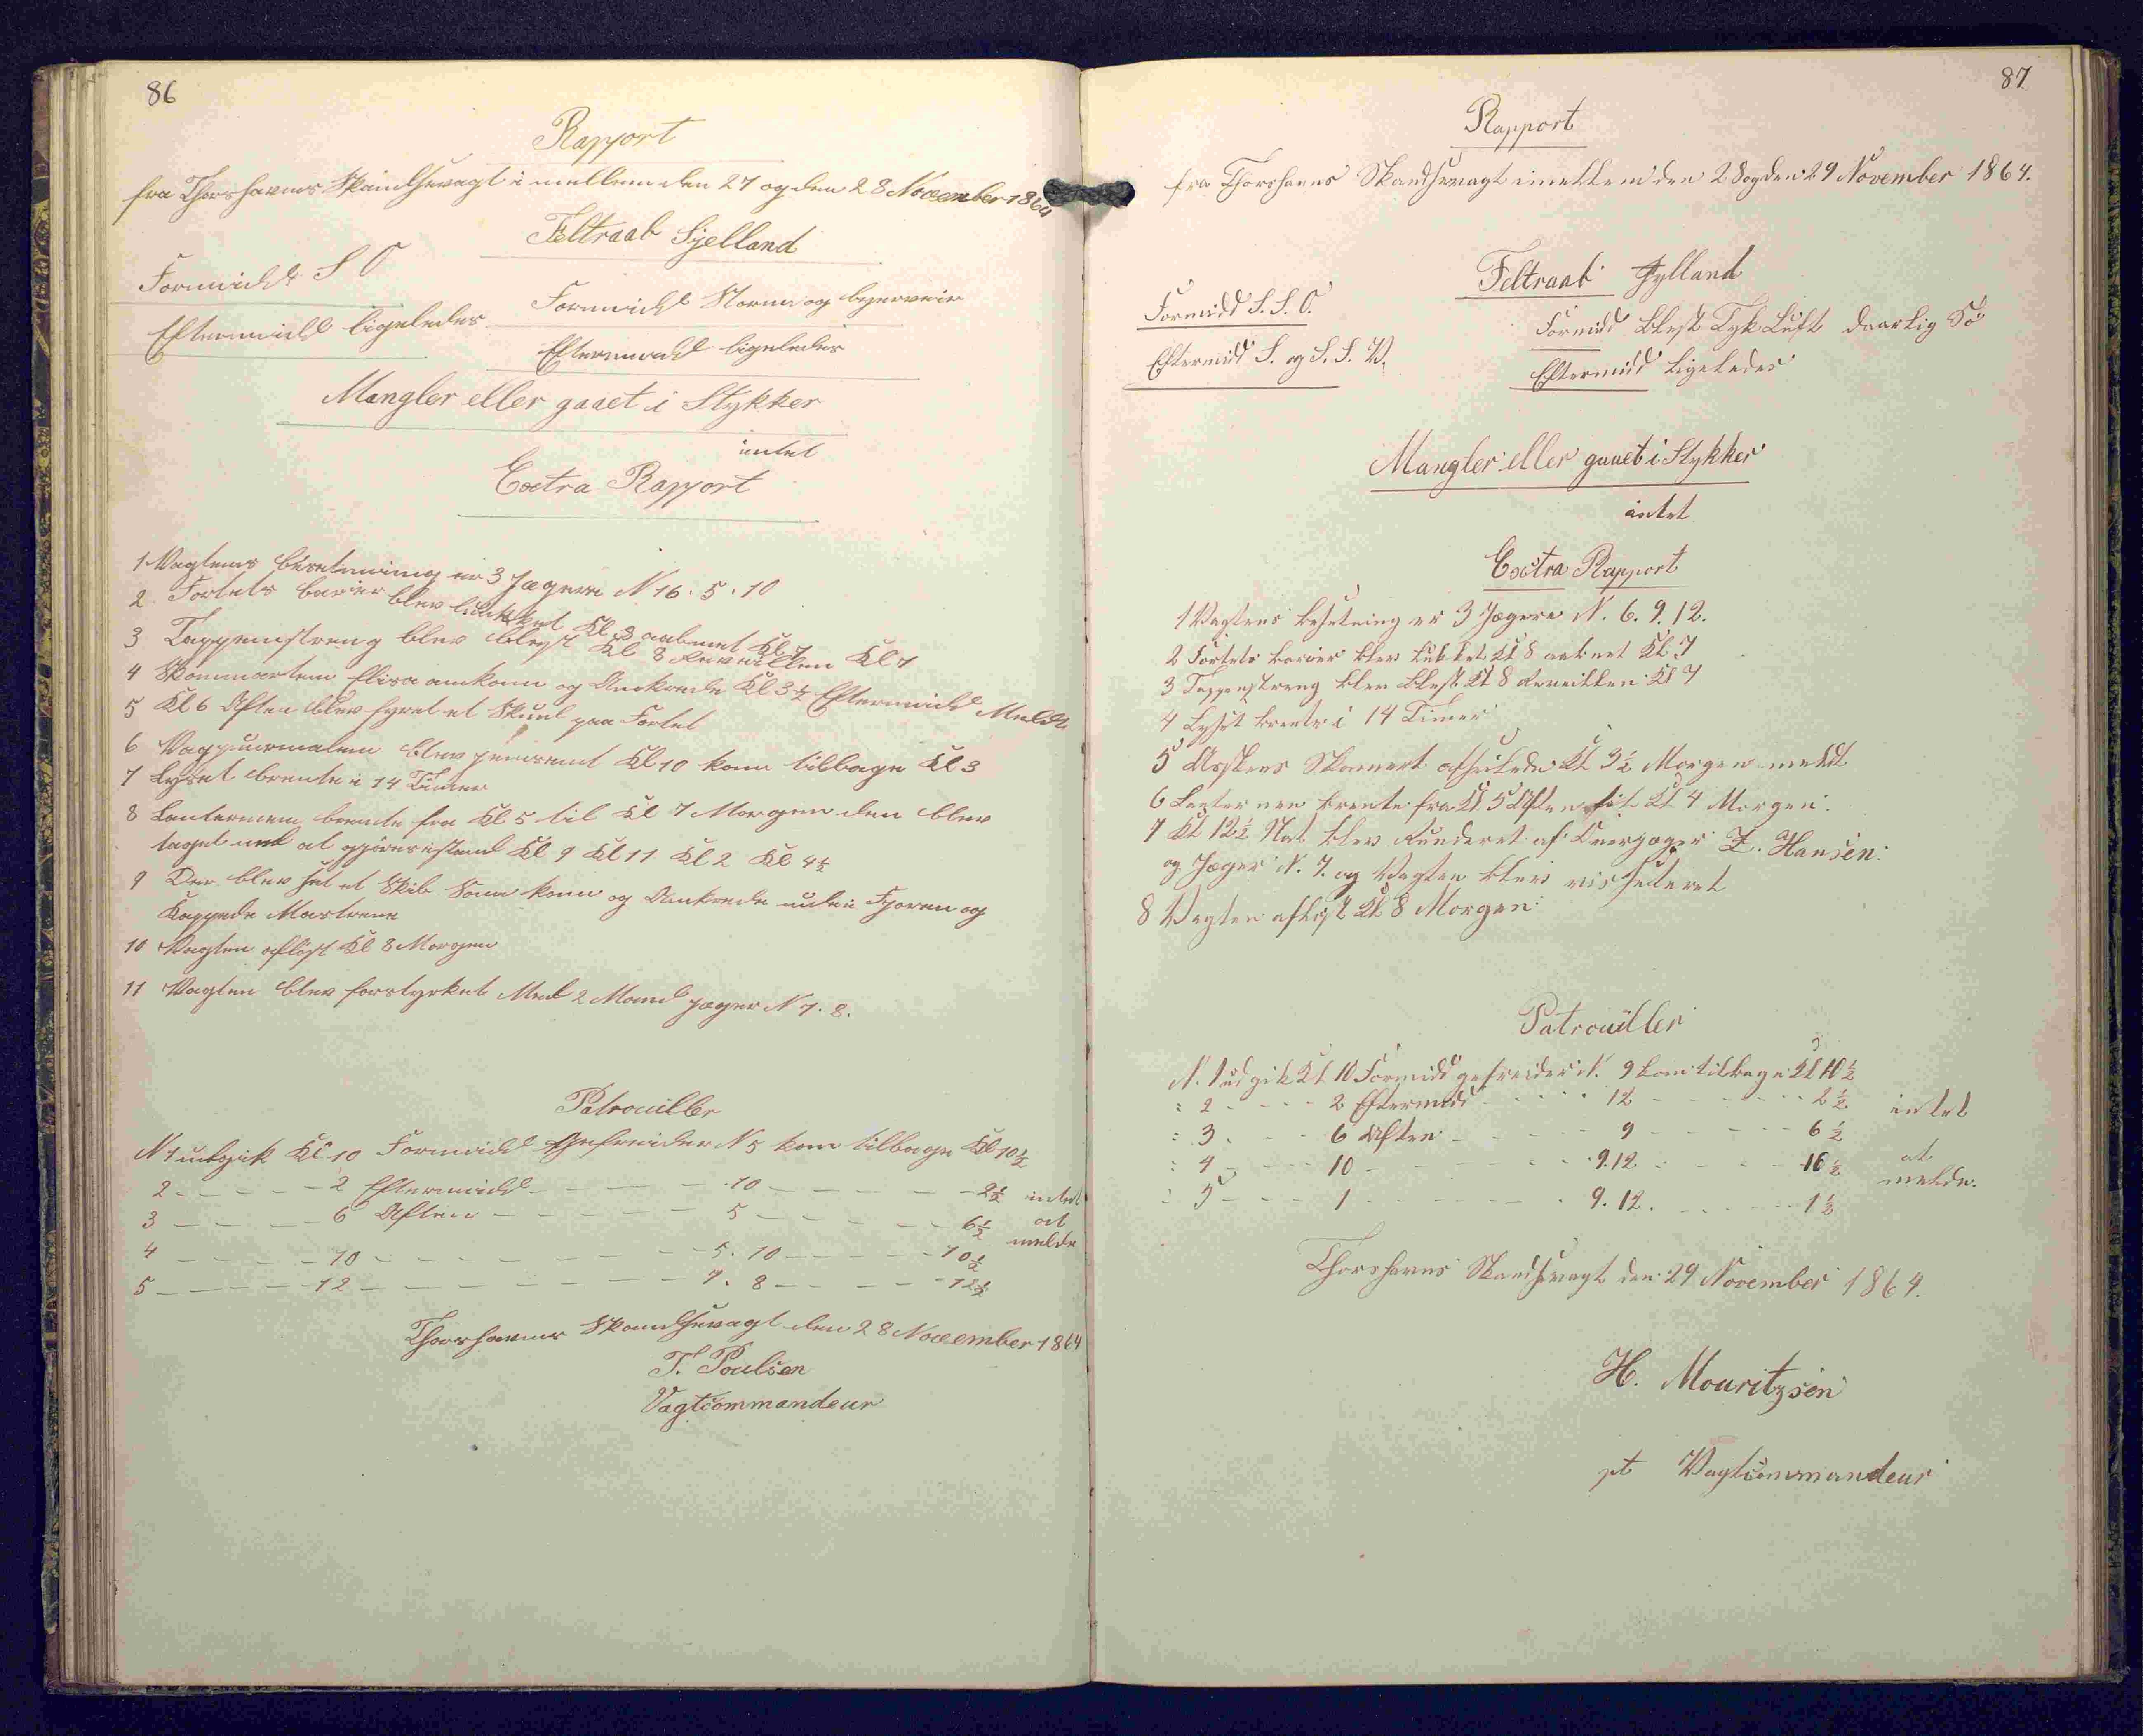 86
Rapport
fra Thorshavns Skandsevagt i mellem den 27 og den 28 November 1864
Feltraab Sjelland
Formidd S O
Formidd Storm og bygeveir
Eftermidd ligeledes
Eftermidd ligeledes
Mangler eller gaaet i Stykker
intet
Extra Rapport
1 Vagtens besetning er 3 Jægere N 16. 5. 10
2 Fortets barier blev lukket Kl 3 aabnet Kl 7
3 Tappenstreng blev blest Kl 8 Reveillen Kl 7
4 Skonnerten Elisa ankom og Ankrede Kl 3½ Eftermidd Meldt
5 Kl 6 Aften blev fyret et Skud paa Fortet
6 Kl 10 kom tilbage Kl 3
7 Lyset brente i 14 Timer
8 Lanternen brente fra Kl 5 til Kl 7 Morgen den blev
taget ned at gjøres istand Kl 9 Kl 11 Kl 2 Kl 4½
9 Der blev set et Skib Som kom og Ankrede ude i Fjoren og
Kappede Masterne
10 Vagten afløst Kl 8 Morgen
11 Vagten blev forstyrket Med 2 Mand jæger N 7. 8.
Patrouiller
N 1 udgik Kl 10 Formidd Gefreider N 5 kom tilbage Kl 10½
2 - - - - - 2 Eftermidd - - - - 10 - - - - - 2½ intet
3 - - - - - 6 Aften - - - - - 5 - - - - - 6½ at
4 - - - - - 10 - - - - - - 5. 10 - - - - - 10½ melde
5 - - - - - 12 - - - - - - 7. 8 - - - - - 12½
Thorshavns Skandsevagt den 28 November 1864
T. Poulsen
Vagtcommandeur
87
Rapport
fra Thorshavns Skandsevagt imellem den 28 og den 29 November 1864.
Feltraab Jylland
Formidd S. S. O.
Formidd blest Tyk Luft daarlig Sö
Eftermidd S. og S. S. V.
Eftermidd Ligeledes
Mangler eller gaaet i Stykker
intet
Extra Rapport
1 Vagtens besetning er 3 Jægere N. 6. 9. 12.
2 Fortets barier blev lukket Kl 8 aabnet Kl 7
3 Tappenstreng blev blest Kl 8 Reveillen Kl 7
4 Lyset brente i 14 Timer
5 Skonnert afseilede Kl 3½ Morgen meldt
6 Lanternen brente fra Kl 5 Aften til Kl 4 Morgen.
7 Kl 12½ Nat blev Runderet af Overjæger Z. Hansen
og Jæger N. 7. og Vagten blev visiteret
8 Vagten afløst Kl 8 Morgen
Patrouiller
N. 1 udgik Kl 10 Formidd gefreider N. 9 kom tilbage Kl 10½
: 2 - - - - 2 Eftermidd - - - - 12 - - - - - 2½ intet
: 3 - - - - 6 Aften - - - - 9 - - - - - 6½
: 4 - - - - 10 - - - - - 9. 12 - - - - 10½ at
: 5 - - - - 1 - - - - - 9. 12. - - - - 1½ melde.
Thorshavns Skandsevagt den 29 November 1864.
H. Mouritzsen
pt Vagtcommandeur